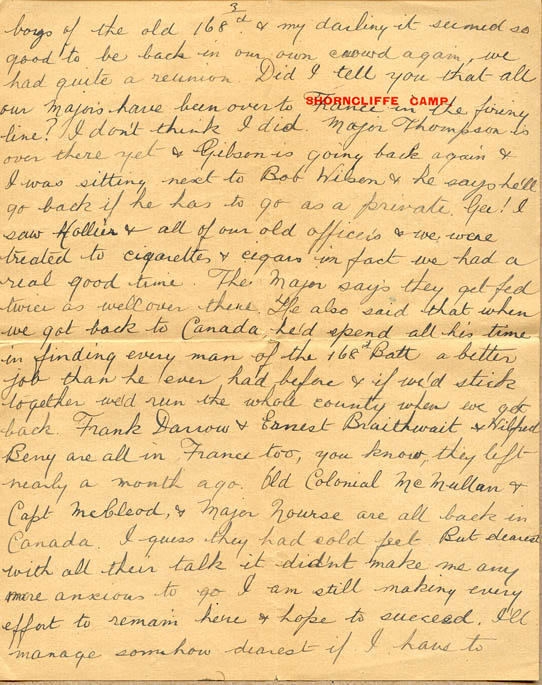 3
boys of the old 168d. & my darling it seemed so
good to be back in our own crowd again, we
had quite a reunion. Did I tell you that all
our Majors have been over to France in the firing
SHORNCLIFFE CAMP.
line? I don't think I did. Major Thompson is
over there yet & Gibson is going back again &
I was sitting next to Bob Wilson & he says he'll
go back if he has to go as a private. Gee! I
saw Hollier & all of our old officers & we were
treated to cigarettes & cigars in fact we had a
real good time. The Major says they get fed
twice as well over there. He also said that when
we got back to Canada he'd spend all his time
in finding every man of the 168d Batt a better
job than he ever had before & if we'd stick
together we'd run the whole county when we got
back. Frank Darrow & Ernest Braithwait & Wilfred
Berry are all in France too, you know, they left
nearly a month ago. Old Colonial McMullan &
Capt McCleod, & Major Nourse are all back in
Canada. I guess they had cold feet But dearest
with all their talk it didn't make me any
more anxious to go I am still making every
effort to remain here & hope to succeed. I'll
manage somehow dearest if I have to